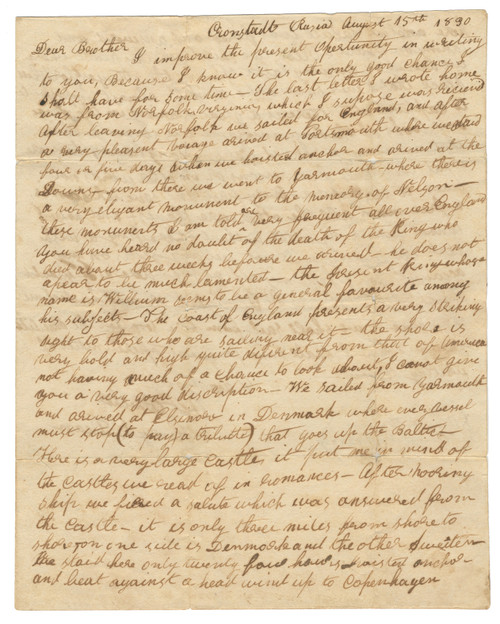 Cronstadt Rusia August 15th 1830
Dear Brother
I improve the present Opertunity in writing
to you, Because I know it is the only good chance I
shall have for some time — The last letter I wrote home
was from Norfolk Virginia which I supose was recieved
After leaving Norfolk we sailed for England, and after
a very pleasent voiage arived at Portsmouth where we staid
four or five days when we hoisted anchor and arived at the
Downs from there we went to Yarmouth — where there is
a very eligant monument to the memory of Nelson —
these monuments I am told are very frequent all over England
you have heard no daubt of the death of the King who
died about three weeks before we arived — he does not
apear to be much lamented — the present King whose
name is William seems to be a general favourite among
his subjects — The coast of England presents a very striking
sight to those who are sailing near it the shore is
very bold and high quite diferent from that of America
not having much of a chance to look about, I canot give
you a very good discription — We sailed from Yarmouth
and arived at Elsinore in Denmark where every vessel
must stop (to pay a tribute) that goes up the Baltic
Here is a very large castle it put me in mind of
the castles we read of in romances — After mooring
ship we fiered a salute which was answered from
the castle — it is only three miles from shore to
shore on one side is Denmark and the other Sweeden
We staid here only twenty four hours hoisted anchor
and beat against a head wind up to Copenhagen